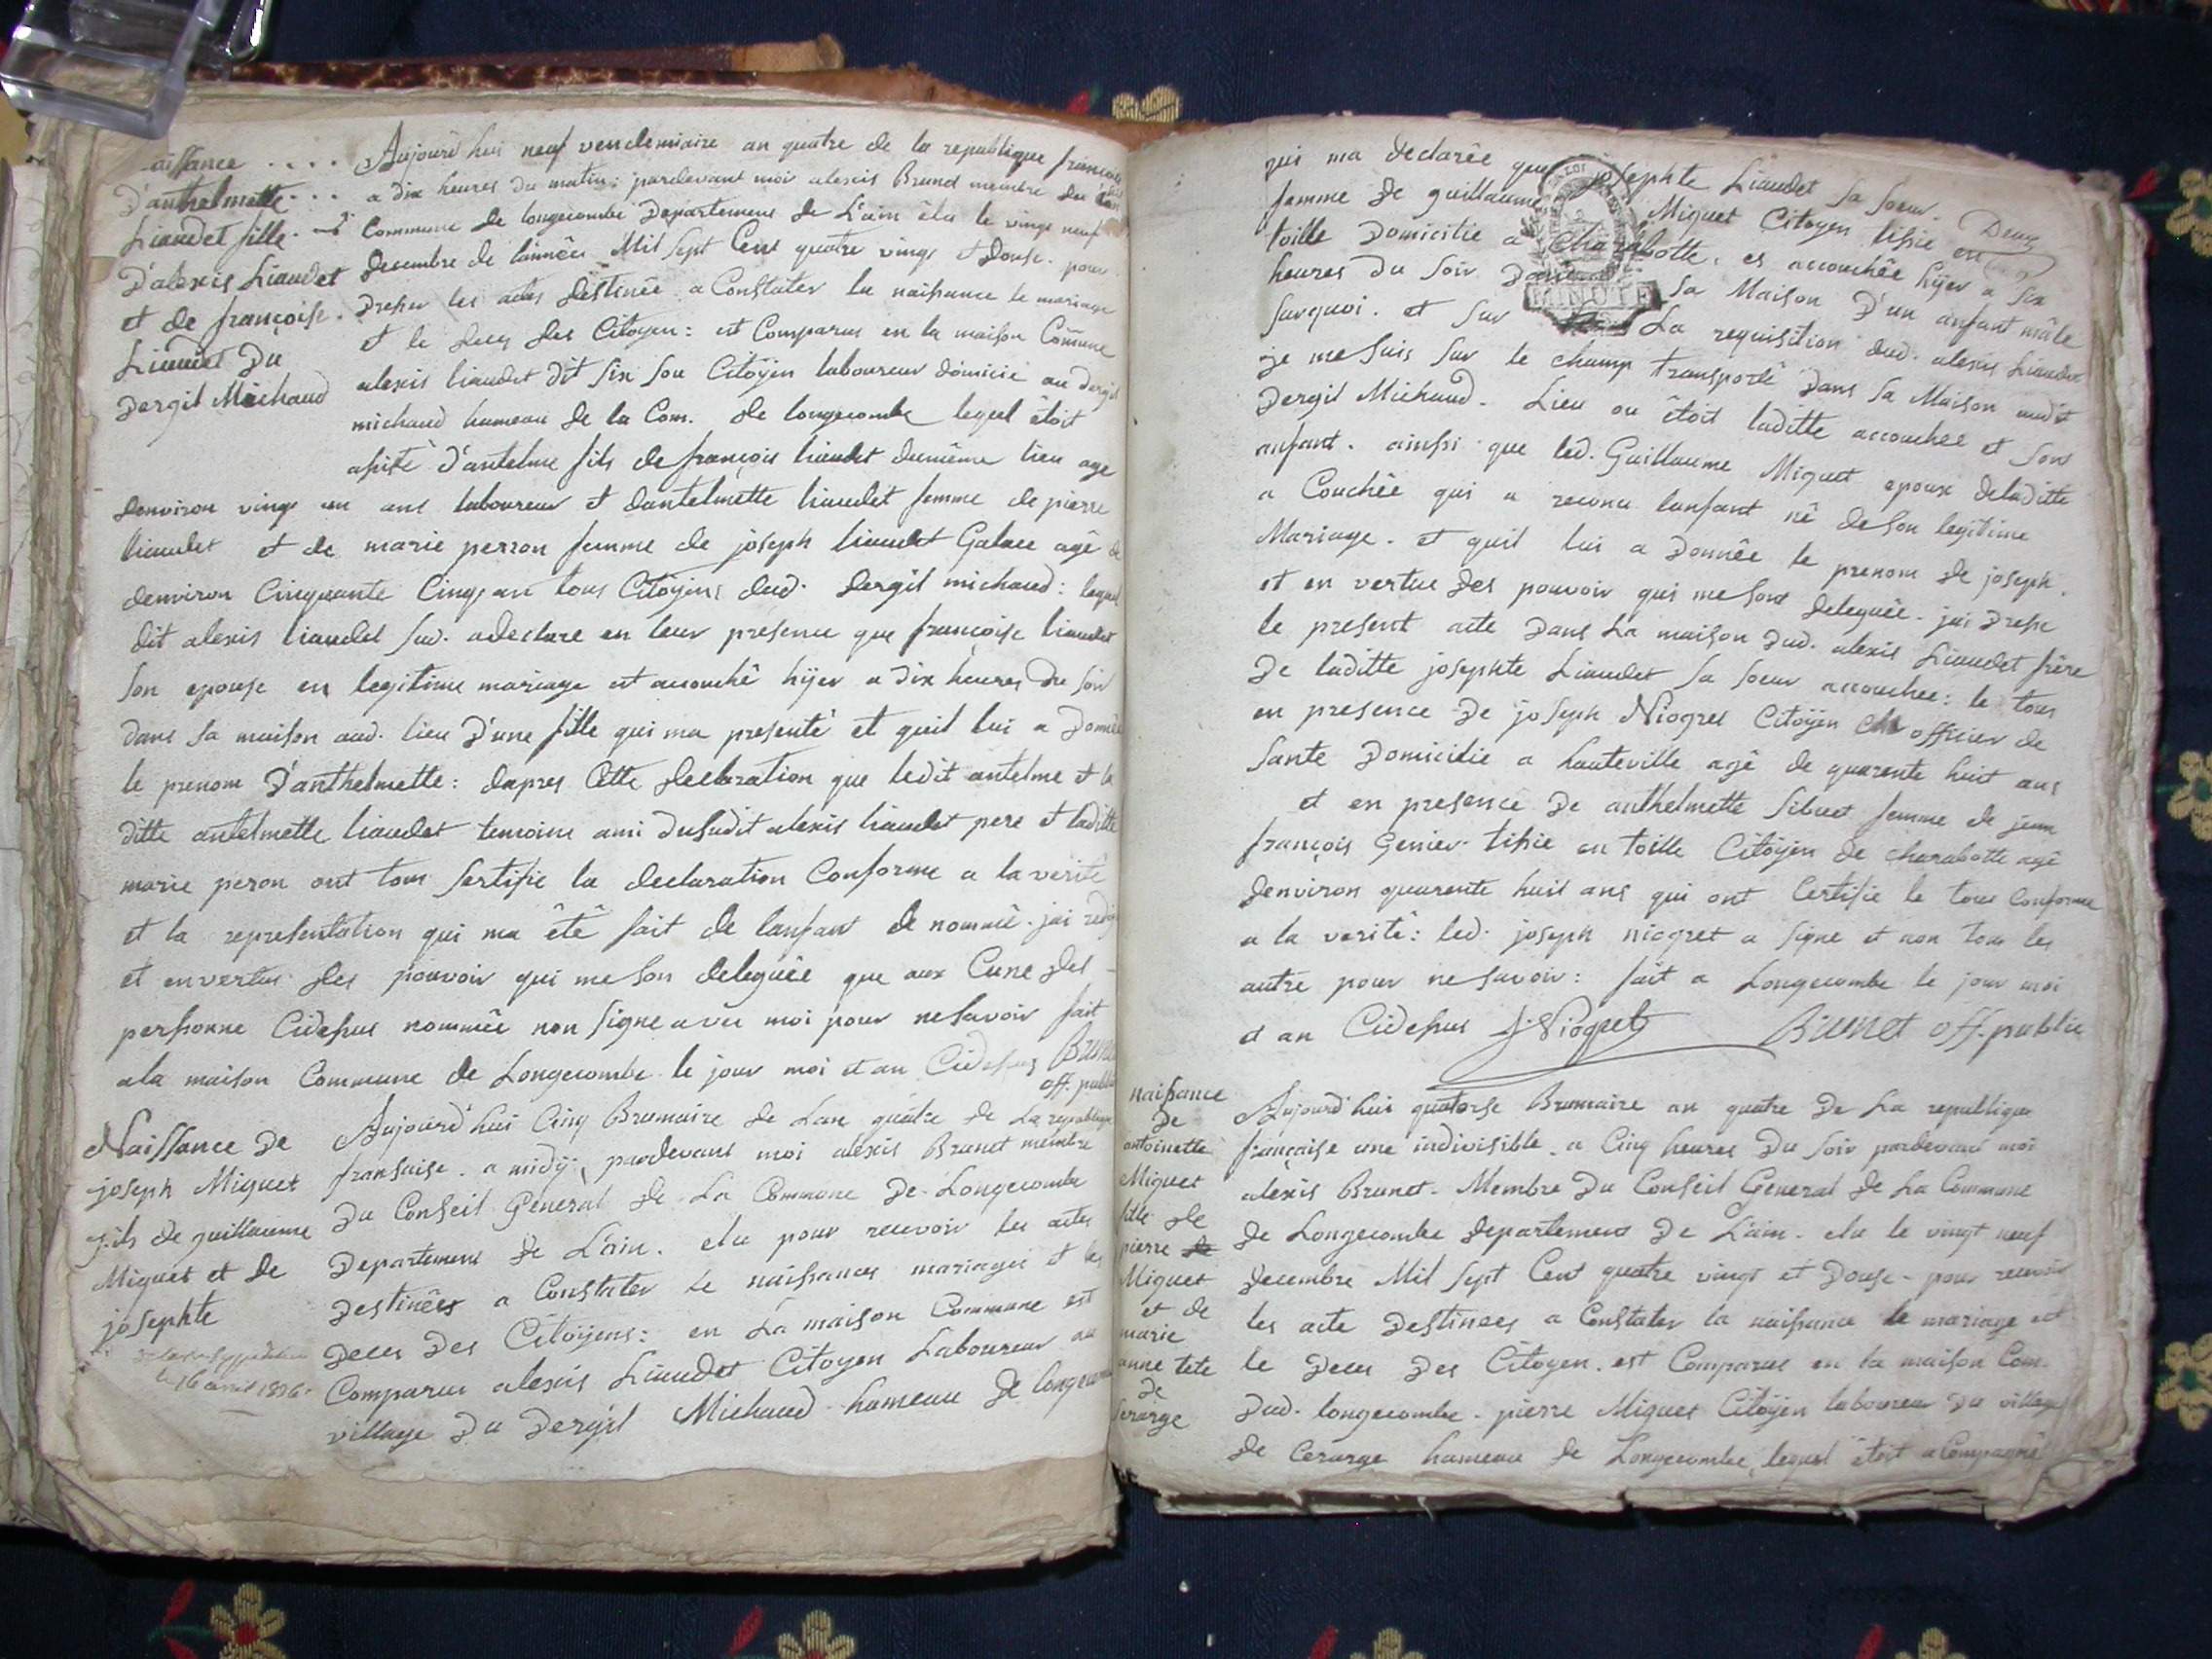 Aujourd'hui neuf vendemiaire an quatre de la republique francaise
a dix heures du matin: pardevant moi alexis Brunet membre du
Commune de longecombe Departement de L'ain élu le vingt neuf
decembre de lannêes Mil Sept Cent quatre vingt et douse. pour
dresser les actes destinée a Constater la naissance le mariage
et le deces des Citoyen: est Comparus en la maison Comune
alexis liaudet dit six sou Citoÿen laboureur domicié au dergit
michaud hameau de la Com. de longecombe lequel êtoit
asisté d'antelme fils de françois liaudet dumême lieu age
denviron vingt un ans laboureur et dantelmette liaudet femme de pierre
liaudet et de marie perron femme de joseph liaudet Galace agê de
denviron Cinquante Cinq an tous Citoÿens dud. dergit michaud: lequel
dit alexis liaudet sud. adeclare en leur presence que françoise liaudet
son epouse en legitime mariage est acouchê hÿer a dix heures du soir
dans sa maison aud. lieu d'une fille qui ma presenté et quil lui a Donnée
le prenom d'anthelmette: dapres Cette declaration que ledit antelme et la
ditte antelmette liaudet temoins ami dusudit alexis liaudet pere et laditte
marie peron ont tous sertifie la declaration Conforme a la verité
et la representation qui ma êtê fait de lanfant de nommê. jai redigé
et envertus des pouvoir qui me son deleguée que aux Cune des
personne Cidessus nommêe non signe avec moi pour nesavoir fait
ala maison Commune de Longecombe le jour moi et an Cidessus Brunet
off. public
aissance
D'anthelmette
Liaudet fille
D'alexis Liaudet
et de françoise
Liaudet Du
Dergit Michaud
Naissance de
joseph Miguet
fils de guillaume
Miguet et de
josephte
le 16 avril 1806.
Aujourd'hui Cinq Brumaire de Lan quatre de La republique
fransaise. a midÿ: pardevant moi alexis Brunet membre
du Conseil General de La Commune de Longecombe
Departement de L'ain. elu pour recevoir les actes
Destinêes a Constater le naissances mariages et les
Deces Des Citoÿens: en La maison Commune est
Comparus alexis Liaudet Citoyen Laboureur au
village Du Dergit Michaud hameau de longecombe
Deux
qui ma declarêe que josephte Liaudet sa soeur.
femme de guillaume Miguet Citoyen tissie en
toille Domicilie a Charabotte. es accouchêe hÿer a six
heures du soir Dans sa Maison D'un anfant mâle
surquoi. et sur La requisition dud. alexis Liaudet
je me suis sur le champ transportê Dans sa Maison audit
Dergit Michaud. Lieu ou êtoit laditte accouchee et son
anfant. ainssi que led. Guillaume Miguet epoux deladitte
a Couchêe qui a reconu lanfant nê de son legitime
Mariage. et quil lui a Donnêe le prenom de joseph.
et en vertue des pouvoir qui me sont deleguée. jai dresse
le present acte Dans La maison Dud. alexis Liaudet frère
De laditte josephte Liaudet sa soeur accouchee: le tous
en presence De joseph Niogret Citoÿen officier de
sante Domicilie a hauteville agê de quarente huit ans
et en presence De anthelmette sibuet femme de jean
françois Genier tissie en toille Citoÿen de charabotte agê
denviron quarente huit ans qui ont Certifie le tous Conforme
a la verité: led. joseph niogret a signe et non tous les
autre pour ne savoir: fait a Longecombe le jour moi
et an Cidessus J Niogret Brunet off. public
naissance
De
antoinette
Miguet
fille de
pierre
Miguet
et de
marie
anne tete
de
Cerarge
Aujourd'hui quatorse Brumaire an quatre De La republique
française une indivisible. a Cinq heures Du soir pardevant moi
alexis Brunet. Membre Du Conseil General de La Commune
de Longecombe departement De L'ain. elu le vingt neuf
decembre Mil sept Cent quatre vingt et Douse. pour recevoir
les acte Destinees a Constater la naissance le mariage et
le Deces Des Citoyen. est Comparus en la maison Com.
Dud. longecombe. pierre Miguet Citoÿen laboureur Du village
de Cerarge hameau de Longecombe, lequel êtoit a Compagnê